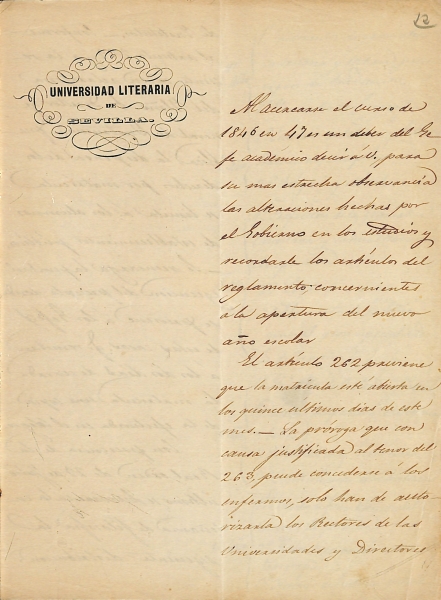 12
UNIVERSIDAD LITERARIA
DE
SEVILLA.
Al acercarse el curso de
1846 en 47 es un deber del Ge
fe académico decir á V, para
su mas estrecha observancia
las alteraciones hechas por
el Gobierno en los estudios y
recordarle los artículos del
reglamento concernientes
á la apertura del nuevo
año escolar
El artículo 262 previene
que la matricula esté abierta en
los quince ultimos dias de este
mes. — La próroga que con
causa justificada al tenor del
263, puede concederse á los
enfermos, solo han de auto
rizarla los Rectores de las
Universidades y Directores